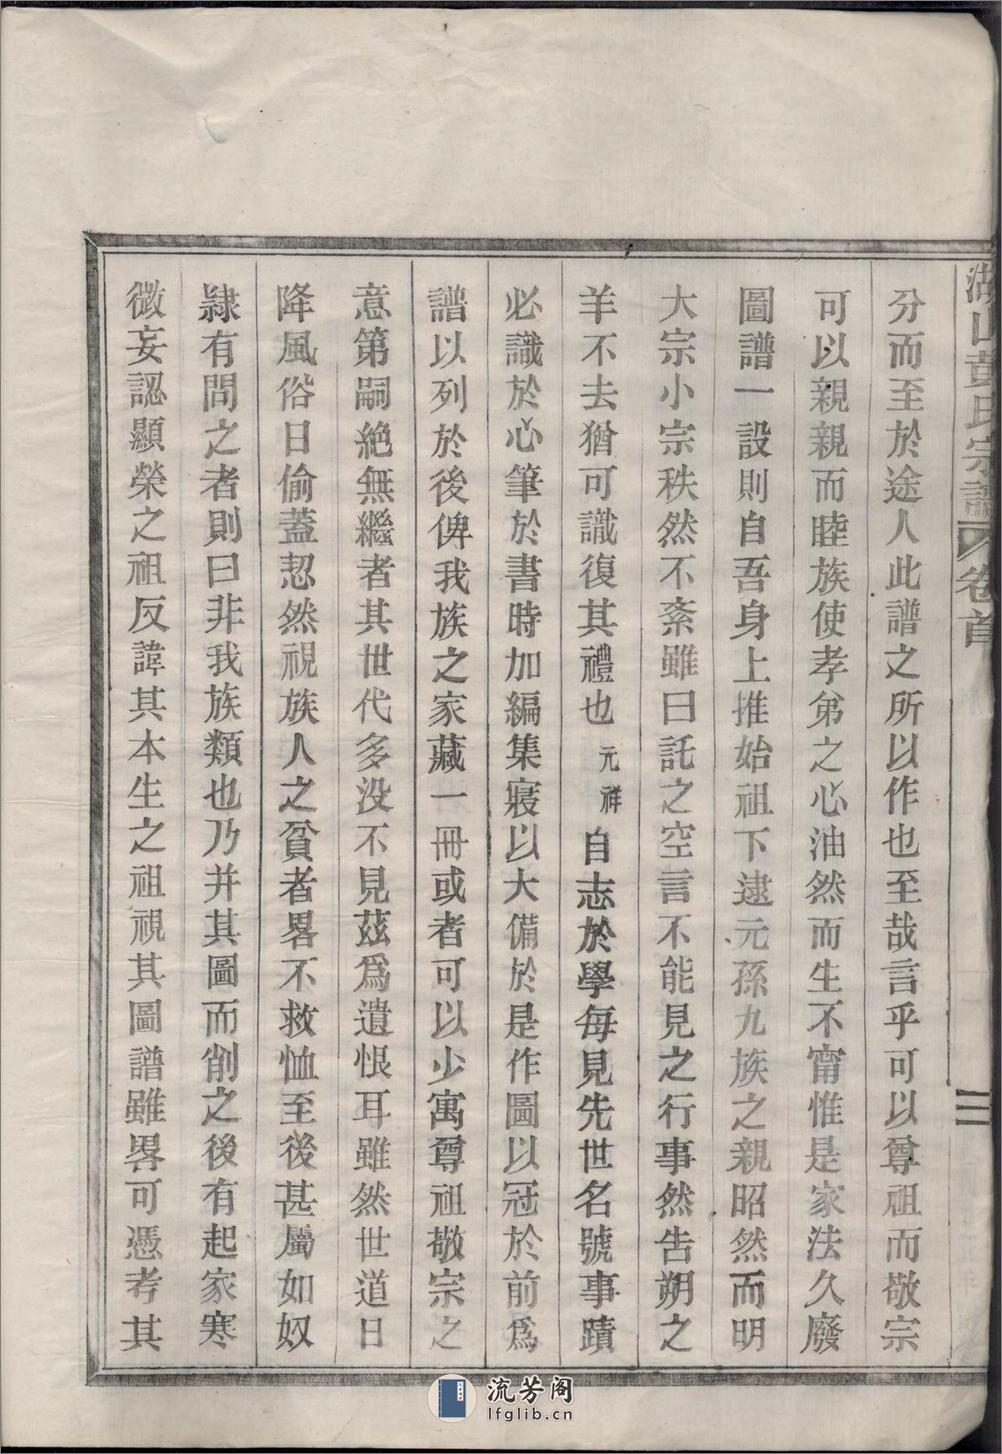 湖山黃氏宗譜 卷首 二
分而至於途人此譜之所以作也至哉言乎可以尊祖而敬宗
可以親親而睦族使孝弟之心油然而生不甯惟是家法久廢
圖譜一設則自吾身上推始祖下逮元孫九族之親昭然而明
大宗小宗秩然不紊雖曰託之空言不能見之行事然告朔之
羊不去猶可識復其禮也元祥自志於學每見先世名號事蹟
必識於心筆於書時加編集寖以大備於是作圖以冠於前爲
譜以列於後俾我族之家藏一冊或者可以少寓尊祖敬宗之
意第嗣絶無繼者其世代多没不見茲爲遺恨耳雖然世道日
降風俗日偷蓋恝然視族人之貧者畧不救恤至後甚屬如奴
隷有問之者則曰非我族類也乃并其圖而削之後有起家寒
微妄認顯榮之祖反諱其本生之祖視其圖譜雖畧可憑考其
流芳阁
lfglib.cn